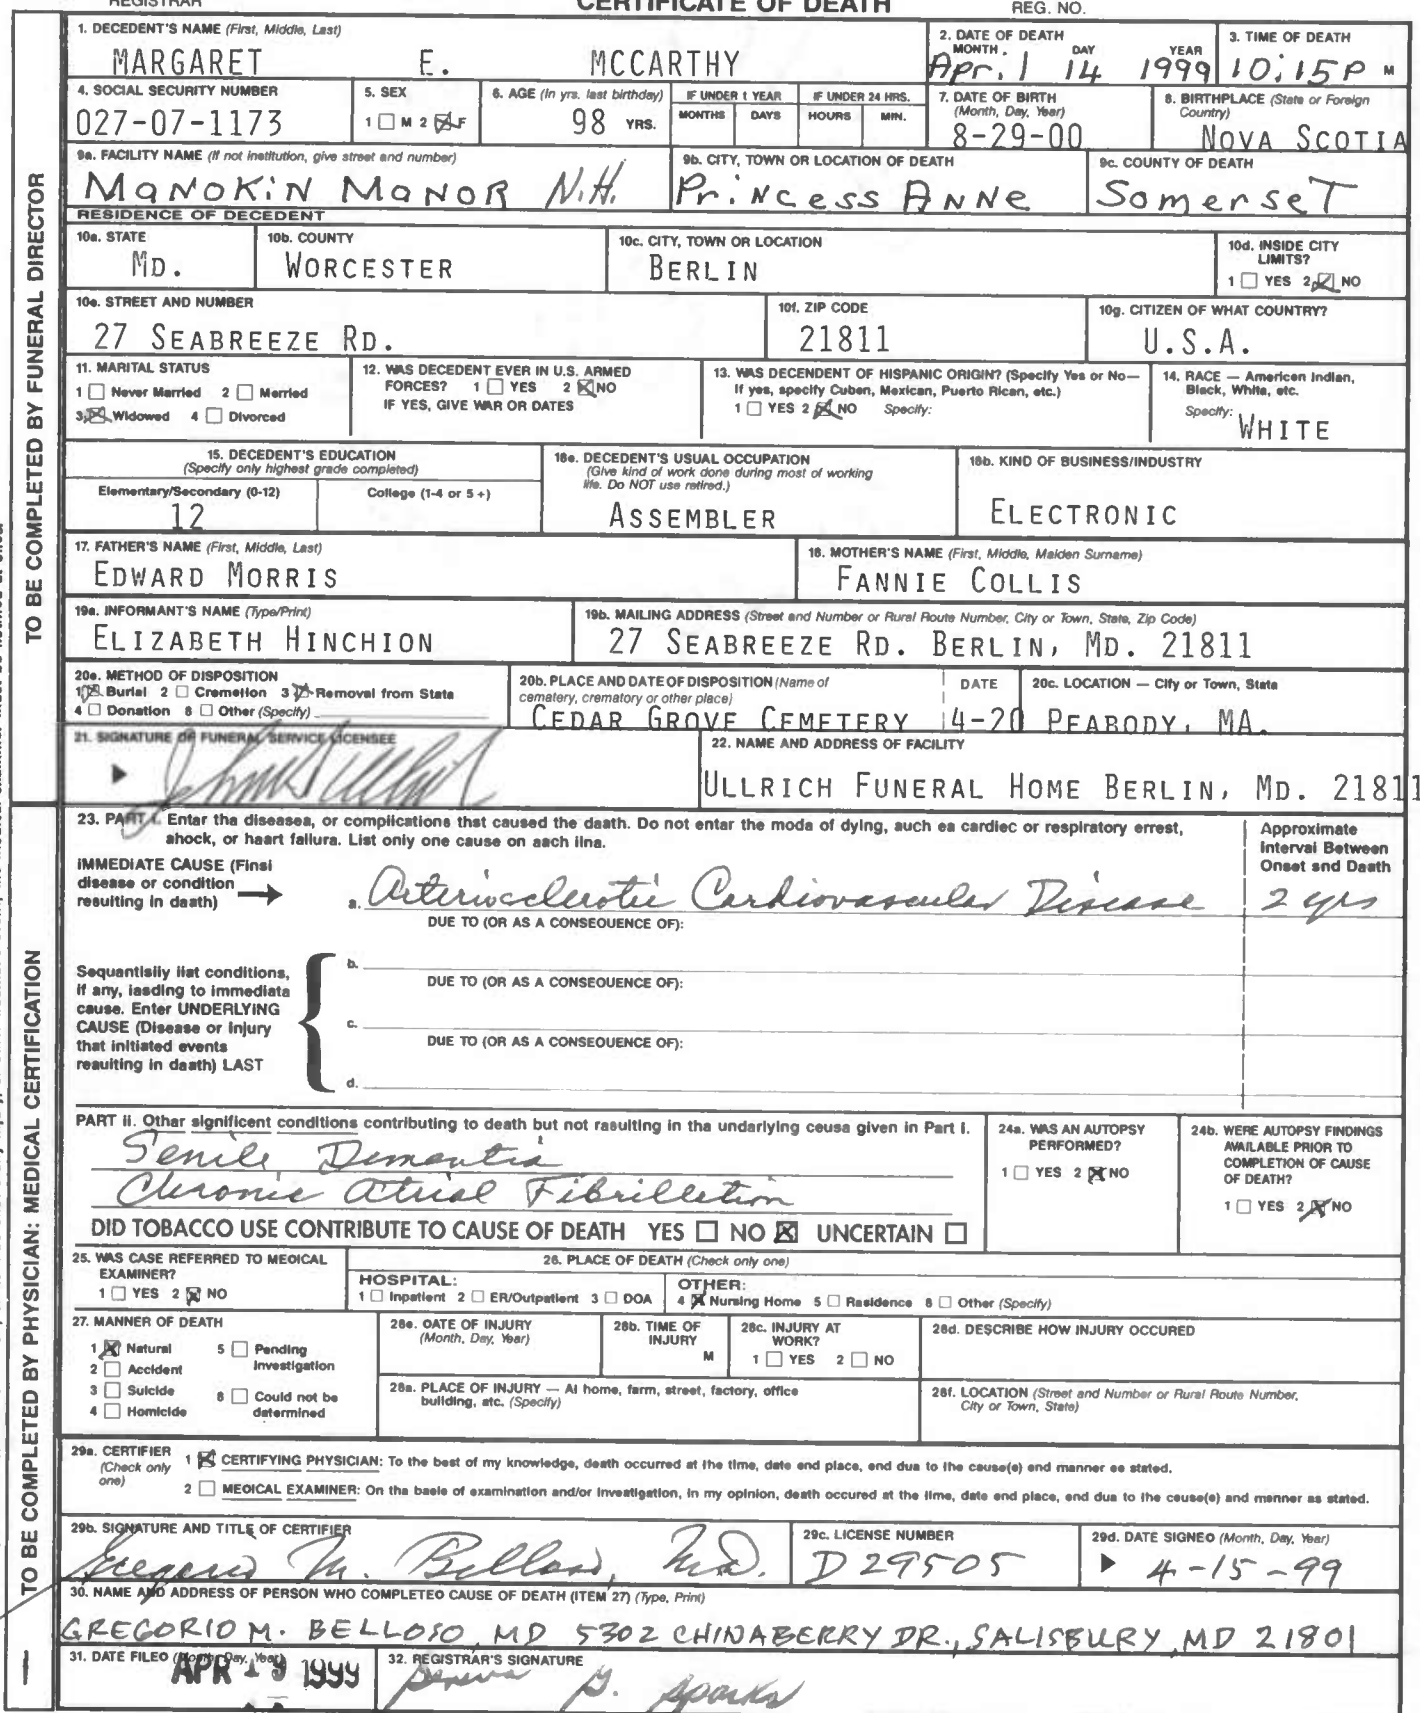 REGISTRAR CERTIFICATE OF DEATH REG. NO.
TO BE COMPLETED BY FUNERAL DIRECTOR
1. DECEDENT'S NAME (First, Middle, Last)
MARGARET E. MCCARTHY
2. DATE OF DEATH
MONTH DAY YEAR
April 14 1999
3. TIME OF DEATH
10:15P M
4. SOCIAL SECURITY NUMBER
027-07-1173
5. SEX
1 ☐ M 2 ☒ F
6. AGE (in yrs. last birthday)
98 YRS.
IF UNDER 1 YEAR
MONTHS DAYS
IF UNDER 24 HRS.
HOURS MIN.
7. DATE OF BIRTH
(Month, Day, Year)
8-29-00
8. BIRTHPLACE (State or Foreign
Country)
NOVA SCOTIA
9a. FACILITY NAME (If not institution, give street and number)
MANOKIN MANOR N.H.
9b. CITY, TOWN OR LOCATION OF DEATH
Princess Anne
9c. COUNTY OF DEATH
Somerset
RESIDENCE OF DECEDENT
10a. STATE
MD.
10b. COUNTY
WORCESTER
10c. CITY, TOWN OR LOCATION
BERLIN
10d. INSIDE CITY
LIMITS?
1 ☐ YES 2 ☒ NO
10e. STREET AND NUMBER
27 SEABREEZE RD.
10f. ZIP CODE
21811
10g. CITIZEN OF WHAT COUNTRY?
U.S.A.
11. MARITAL STATUS
1 ☐ Never Married 2 ☐ Married
3 ☒ Widowed 4 ☐ Divorced
12. WAS DECEDENT EVER IN U.S. ARMED
FORCES? 1 ☐ YES 2 ☒ NO
IF YES, GIVE WAR OR DATES
13. WAS DECENDENT OF HISPANIC ORIGIN? (Specify Yes or No—
If yes, specify Cuban, Mexican, Puerto Rican, etc.)
1 ☐ YES 2 ☒ NO Specify:
14. RACE — American Indian,
Black, White, etc.
Specify: WHITE
15. DECEDENT'S EDUCATION
(Specify only highest grade completed)
Elementary/Secondary (0-12) College (1-4 or 5+)
12
16a. DECEDENT'S USUAL OCCUPATION
(Give kind of work done during most of working
life. Do NOT use retired.)
ASSEMBLER
16b. KIND OF BUSINESS/INDUSTRY
ELECTRONIC
17. FATHER'S NAME (First, Middle, Last)
EDWARD MORRIS
18. MOTHER'S NAME (First, Middle, Maiden Surname)
FANNIE COLLIS
19a. INFORMANT'S NAME (Type/Print)
ELIZABETH HINCHION
19b. MAILING ADDRESS (Street and Number or Rural Route Number, City or Town, State, Zip Code)
27 SEABREEZE RD. BERLIN, MD. 21811
20a. METHOD OF DISPOSITION
1 ☒ Burial 2 ☐ Cremation 3 ☒ Removal from State
4 ☐ Donation 8 ☐ Other (Specify)
20b. PLACE AND DATE OF DISPOSITION (Name of
cemetery, crematory or other place) DATE
CEDAR GROVE CEMETERY 4-20
20c. LOCATION — City or Town, State
PEABODY, MA.
21. SIGNATURE OF FUNERAL SERVICE LICENSEE
22. NAME AND ADDRESS OF FACILITY
ULLRICH FUNERAL HOME BERLIN, MD. 21811
TO BE COMPLETED BY PHYSICIAN: MEDICAL CERTIFICATION
23. PART I. Enter the diseases, or complications that caused the death. Do not enter the mode of dying, such as cardiac or respiratory arrest,
shock, or heart failure. List only one cause on each line.
Approximate
Interval Between
Onset and Death
IMMEDIATE CAUSE (Final
disease or condition
resulting in death)
a. Arteriosclerotic Cardiovascular Disease 2 yrs
DUE TO (OR AS A CONSEQUENCE OF):
Sequentially list conditions,
if any, leading to immediate
cause. Enter UNDERLYING
CAUSE (Disease or injury
that initiated events
resulting in death) LAST
b.
DUE TO (OR AS A CONSEQUENCE OF):
c.
DUE TO (OR AS A CONSEQUENCE OF):
d.
PART II. Other significent conditions contributing to death but not resulting in the underlying cause given in Part I.
Senile Dementia
Chronic Atrial Fibrilletion
DID TOBACCO USE CONTRIBUTE TO CAUSE OF DEATH YES ☐ NO ☒ UNCERTAIN ☐
24a. WAS AN AUTOPSY
PERFORMED?
1 ☐ YES 2 ☒ NO
24b. WERE AUTOPSY FINDINGS
AVAILABLE PRIOR TO
COMPLETION OF CAUSE
OF DEATH?
1 ☐ YES 2 ☒ NO
25. WAS CASE REFERRED TO MEDICAL
EXAMINER?
1 ☐ YES 2 ☒ NO
26. PLACE OF DEATH (Check only one)
HOSPITAL:
1 ☐ Inpatient 2 ☐ ER/Outpatient 3 ☐ DOA
OTHER:
4 ☒ Nursing Home 5 ☐ Residence 6 ☐ Other (Specify)
27. MANNER OF DEATH
1 ☒ Natural 5 ☐ Pending
Investigation
2 ☐ Accident
3 ☐ Suicide 8 ☐ Could not be
determined
4 ☐ Homicide
28a. DATE OF INJURY
(Month, Day, Year)
28b. TIME OF
INJURY
M
28c. INJURY AT
WORK?
1 ☐ YES 2 ☐ NO
28d. DESCRIBE HOW INJURY OCCURED
28e. PLACE OF INJURY — At home, farm, street, factory, office
building, etc. (Specify)
28f. LOCATION (Street and Number or Rural Route Number,
City or Town, State)
29a. CERTIFIER
(Check only
one)
1 ☒ CERTIFYING PHYSICIAN: To the best of my knowledge, death occurred at the time, date and place, and due to the cause(s) and manner as stated.
2 ☐ MEDICAL EXAMINER: On the basis of examination and/or investigation, in my opinion, death occured at the time, date and place, and due to the cause(s) and manner as stated.
29b. SIGNATURE AND TITLE OF CERTIFIER
Gregorio M. Belloso, MD.
29c. LICENSE NUMBER
D29505
29d. DATE SIGNED (Month, Day, Year)
4-15-99
30. NAME AND ADDRESS OF PERSON WHO COMPLETED CAUSE OF DEATH (ITEM 27) (Type, Print)
GREGORIO M. BELLOSO, MD 5302 CHINABERRY DR., SALISBURY, MD 21801
31. DATE FILED (Month, Day, Year)
APR 19 1999
32. REGISTRAR'S SIGNATURE
G. Sparks